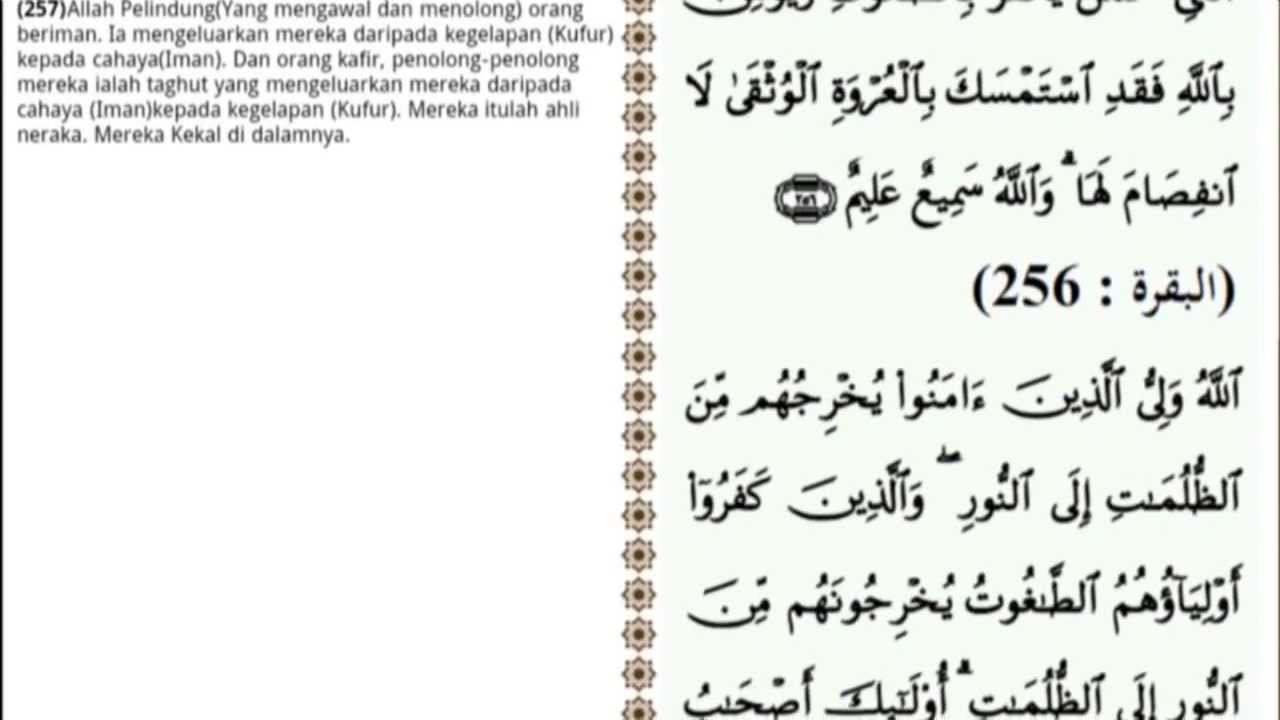 (257)Allah Pelindung(Yang mengawal dan menolong) orang
beriman. Ia mengeluarkan mereka daripada kegelapan (Kufur)
kepada cahaya(Iman). Dan orang kafir, penolong-penolong
mereka ialah taghut yang mengeluarkan mereka daripada
cahaya (Iman)kepada kegelapan (Kufur). Mereka itulah ahli
neraka. Mereka Kekal di dalamnya.
بِٱللَّهِ فَقَدِ ٱسْتَمْسَكَ بِٱلْعُرْوَةِ ٱلْوُثْقَىٰ لَا
ٱنفِصَامَ لَهَا ۗ وَٱللَّهُ سَمِيعٌ عَلِيمٌ ٢٥٦
(البقرة : 256)
ٱللَّهُ وَلِىُّ ٱلَّذِينَ ءَامَنُوا۟ يُخْرِجُهُم مِّنَ
ٱلظُّلُمَـٰتِ إِلَى ٱلنُّورِ ۖ وَٱلَّذِينَ كَفَرُوٓا۟
أَوْلِيَآؤُهُمُ ٱلطَّـٰغُوتُ يُخْرِجُونَهُم مِّنَ
ٱلنُّورِ إِلَى ٱلظُّلُمَـٰتِ ۗ أُو۟لَـٰٓئِكَ أَصْحَـٰبُ